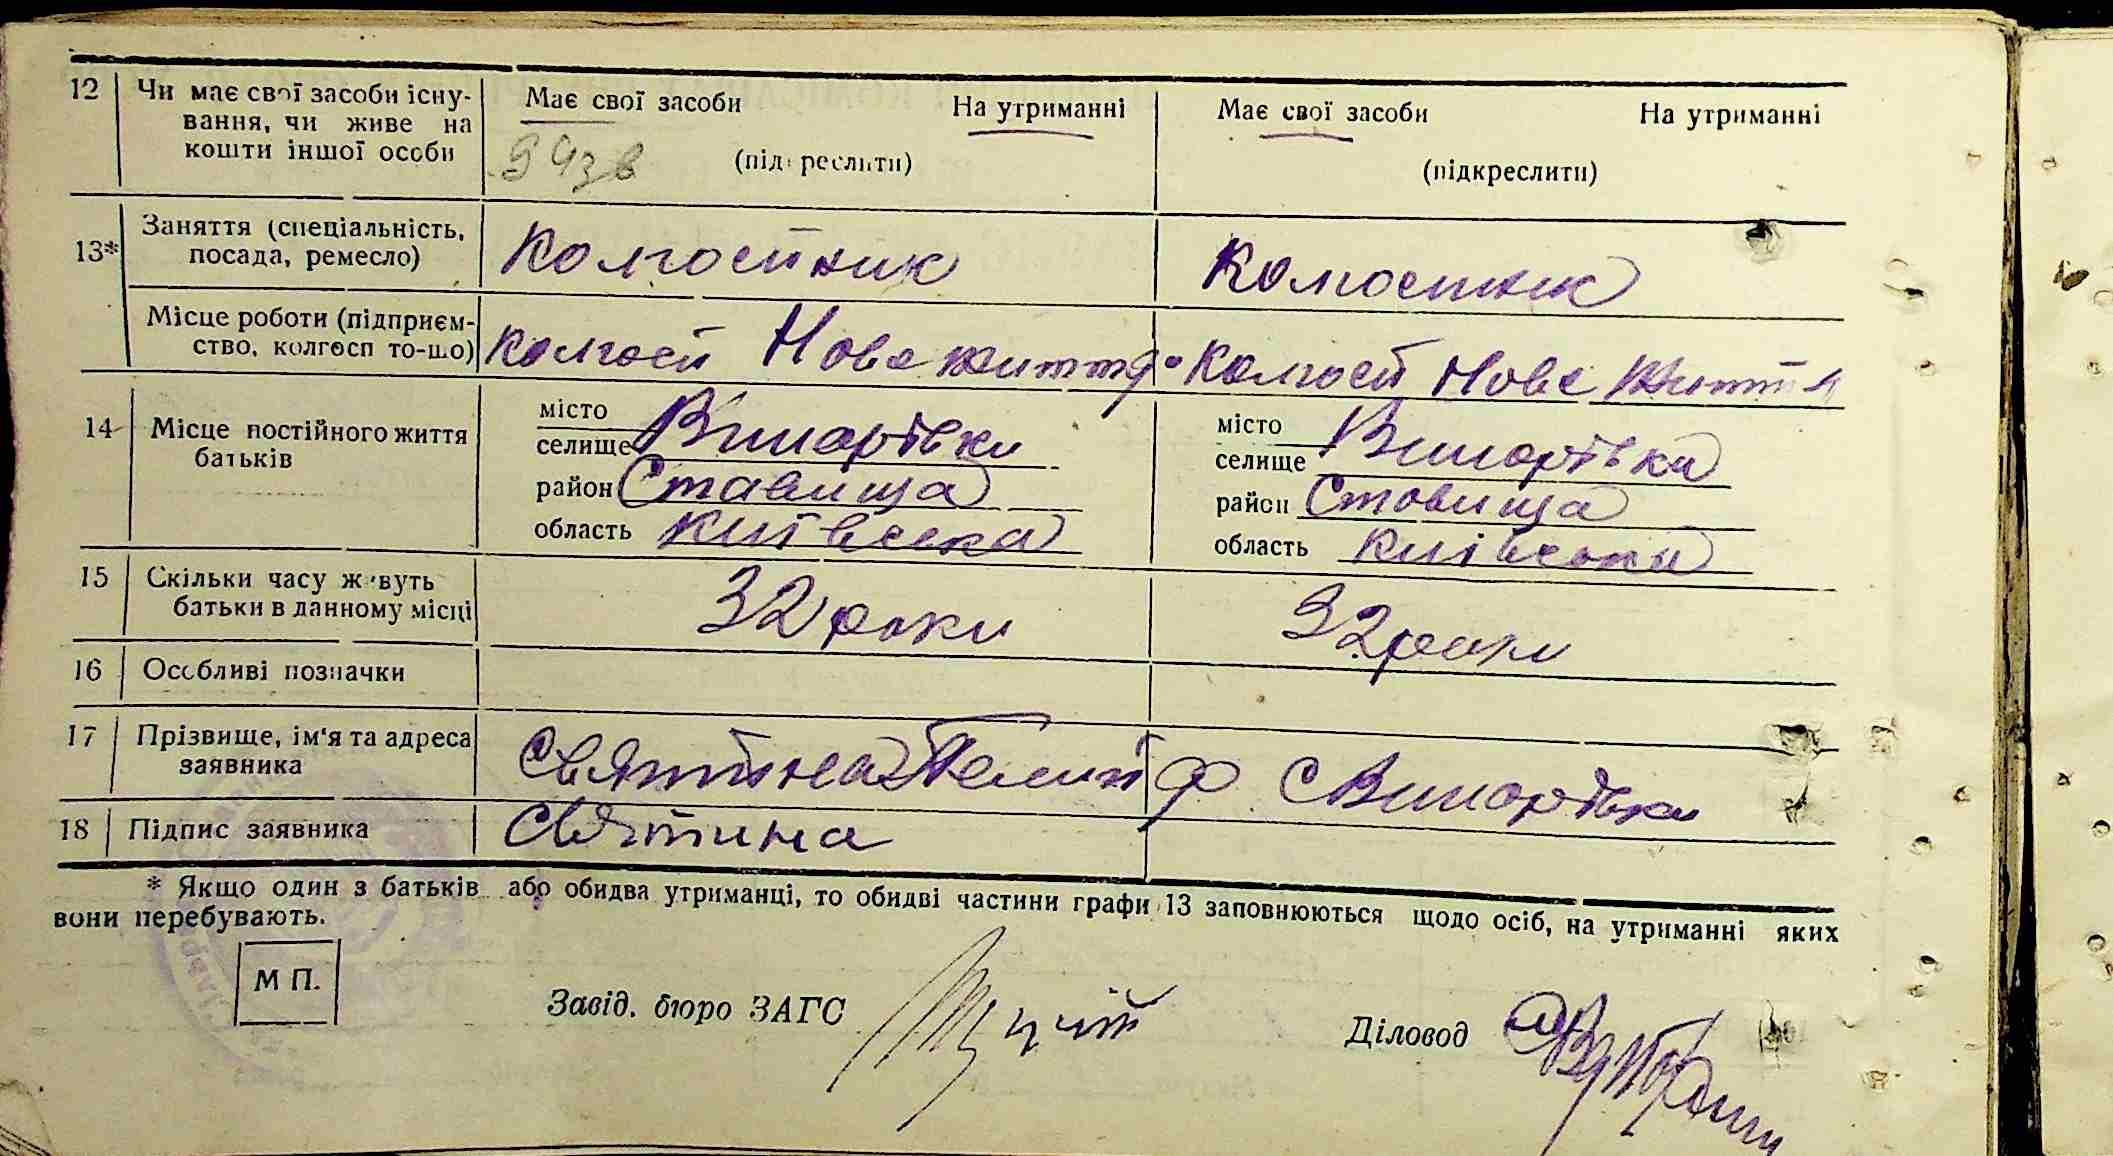 12 Чи має свої засоби існу- Має свої засоби На утриманні Має свої засоби На утриманні
вання, чи живе на
кошти іншої особи (підкреслити) (підкреслити)
13* Заняття (спеціальність, Колгоспник Колгоспник
посада, ремесло)
Місце роботи (підприєм- колгосп Нове життя Колгосп Нове Життя
ство, колгосп то-що)
14 Місце постійного життя місто місто
батьків селище Винарівка селище Винарівка
район Ставища район Ставища
область Київська область Київська
15 Скільки часу живуть 32 роки 32 роки
батьки в данному місці
16 Особливі позначки
17 Прізвище, ім'я та адреса Святина Ф. с Винарівка
заявника
18 Підпис заявника Святина
* Якщо один з батьків або обидва утриманці, то обидві частини графи 13 заповнюються щодо осіб, на утриманні яких
вони перебувають.
М П.
Завід. бюро ЗАГС Діловод